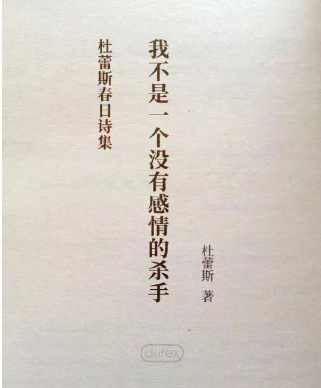 我不是一个没有感情的杀手
杜蕾斯春日诗集
杜蕾斯 著
durex